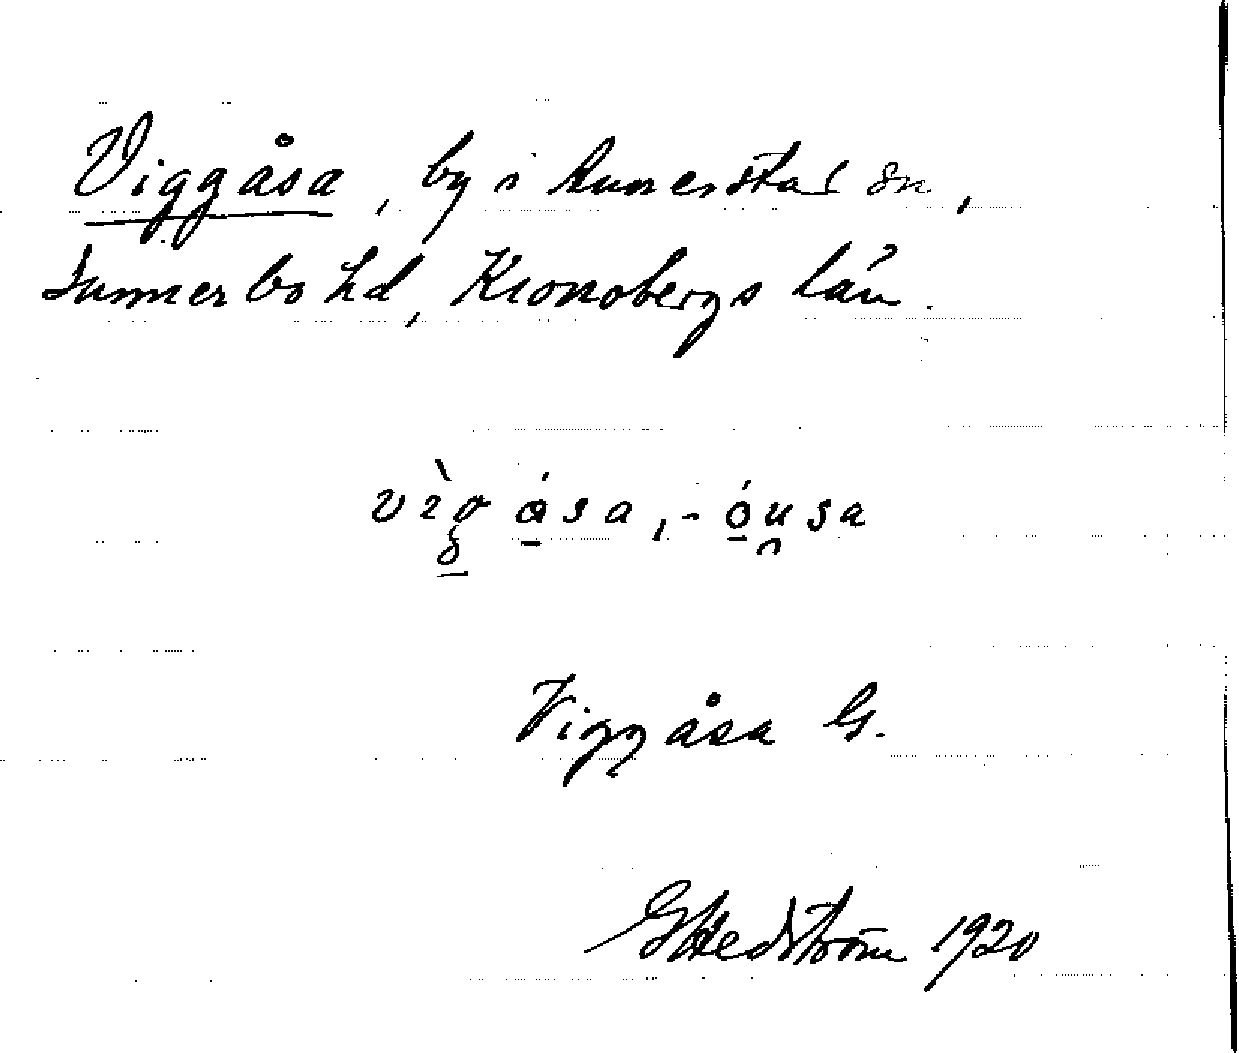 Viggåsa, by i Annerstad sn,
Sunnerbo hd, Kronobergs län.
vìg ása, -óusa
Viggåsa G.
G Hedström 1920